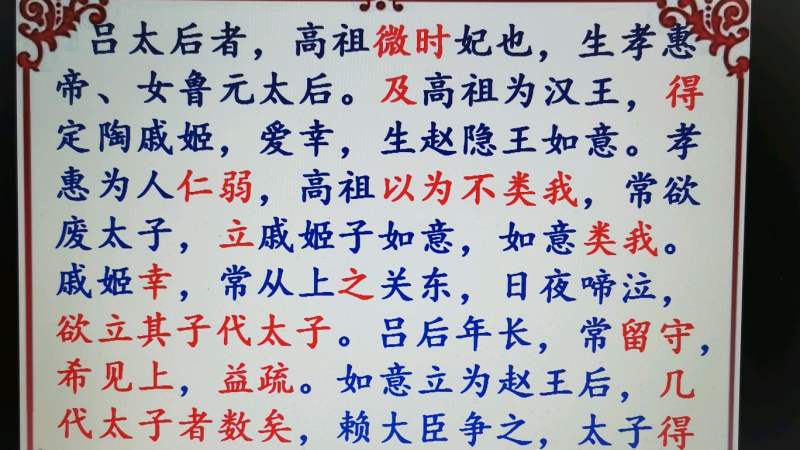 吕太后者，高祖微时妃也，生孝惠
帝、女鲁元太后。及高祖为汉王，得
定陶戚姬，爱幸，生赵隐王如意。孝
惠为人仁弱，高祖以为不类我，常欲
废太子，立戚姬子如意，如意类我。
戚姬幸，常从上之关东，日夜啼泣，
欲立其子代太子。吕后年长，常留守，
希见上，益疏。如意立为赵王后，几
代太子者数矣，赖大臣争之，太子得